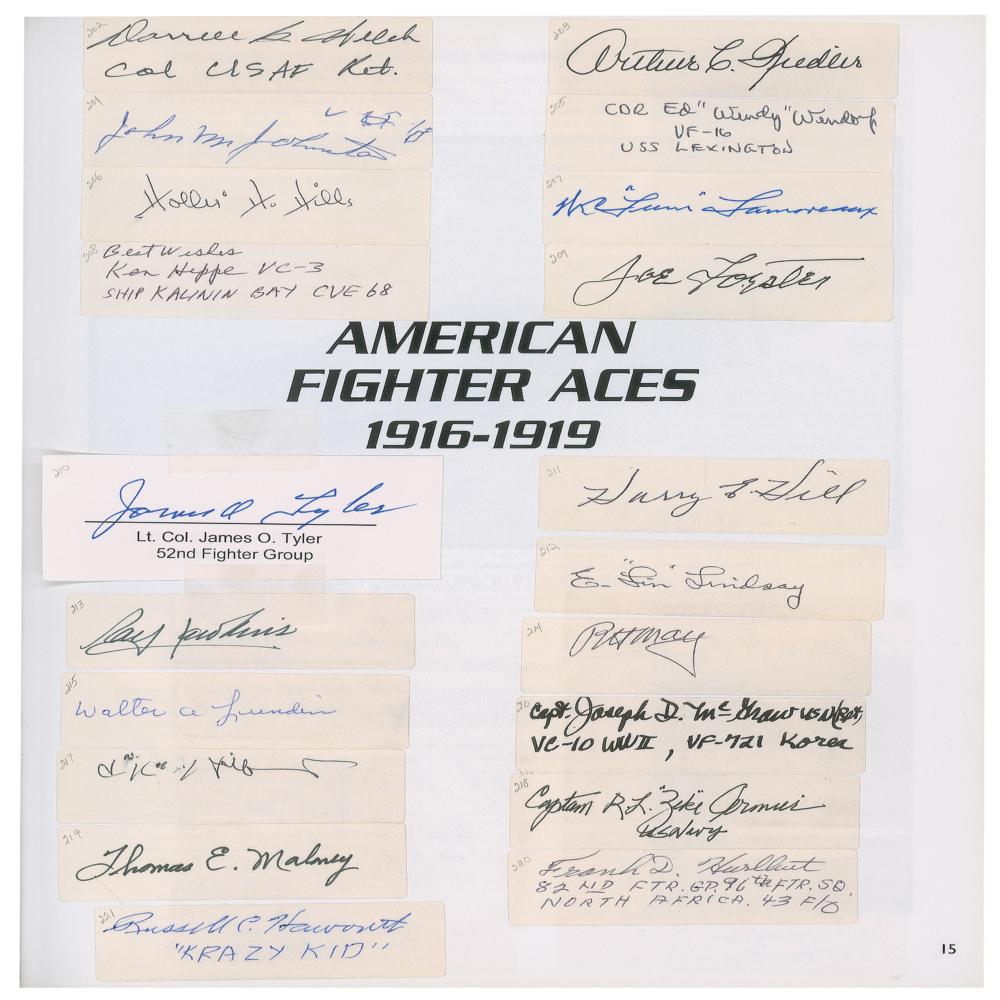 202
Darrell G. Welch
Col USAF Ret.
203
Arthur C. Fiedler
204
John M Johnston
205
CDR Ed "Wendy" Wendorf
VF-16
USS LEXINGTON
206
"Hollis" H. Hills
207
"Lum" Lamoreaux
208
Best Wishes
Ken Hippe VC-3
SHIP KALININ BAY CVE 68
209
Joe Foster
AMERICAN
FIGHTER ACES
1916-1919
210
James O Tyler
Lt. Col. James O. Tyler
52nd Fighter Group
211
Harry E. Hill
212
E. "Lin" Lindsay
213
Ray
214
R H May
215
Walter A Lundin
216
Capt. Joseph D. McGraw USN (Ret)
VC-10 WWII, VF-721 Korea
217
218
Captain R. L. "Zeke" Cormier
US Navy
219
Thomas E. Maloney
220
Frank D. Hurlbut
82ND FTR. GP. 96th FTR. SQ.
NORTH AFRICA. 43 F/O
221
Russell C. Haworth
"KRAZY KID"
15